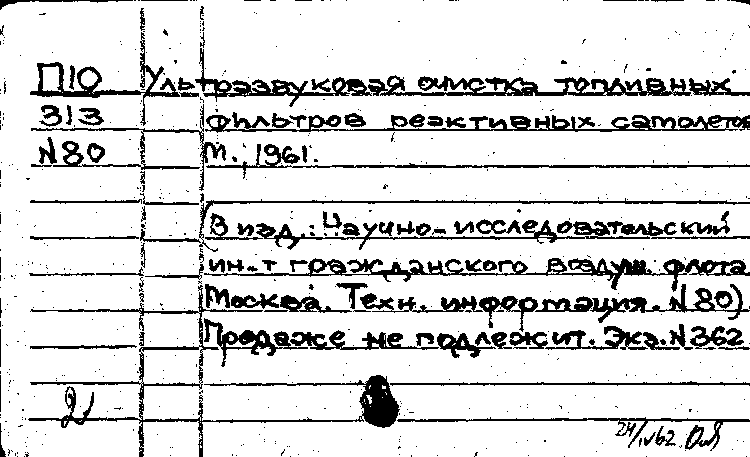 П10 Ультразвуковая очистка топливных
313 фильтров реактивных самолетов
N80 М., 1961.
(В изд.: Научно-исследовательский
ин-т гражданского воздуш. флота
Москва. Техн. информация. N80)
Продаже не подлежит. Экз. N362
21
24/IV62